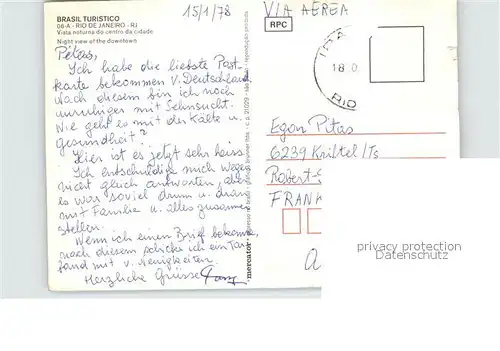 BRASIL TURISTICO
08-A - RIO DE JANEIRO - RJ
Vista noturna do centro da cidade
Night view of the downtown
15/1/78
VIA AEREA
RPC
18 0
RIO
Pitas,
Ich habe die liebste Post
karte bekommen v. Deutschland.
Nach diesem bin ich noch
unruhiger mit Sehnsucht.
Wie geht es mit der Kälte u.
Gesundheit?
Hier ist es jetzt sehr heiss.
Ich entschuldige mich wegen
nicht gleich antworten, aber
es war soviel drum u. dran
mit Familie u. alles zusammen
stellen.
Wenn ich einen Brief bekomme,
nach diesem schicke ich ein
band mit v. Neuigkeiten.
Herzliche Grüsse
mercator
Egon Pitas
6239 Kriftel/Ts
Robert-
FRANK
privacy protection
Datenschutz